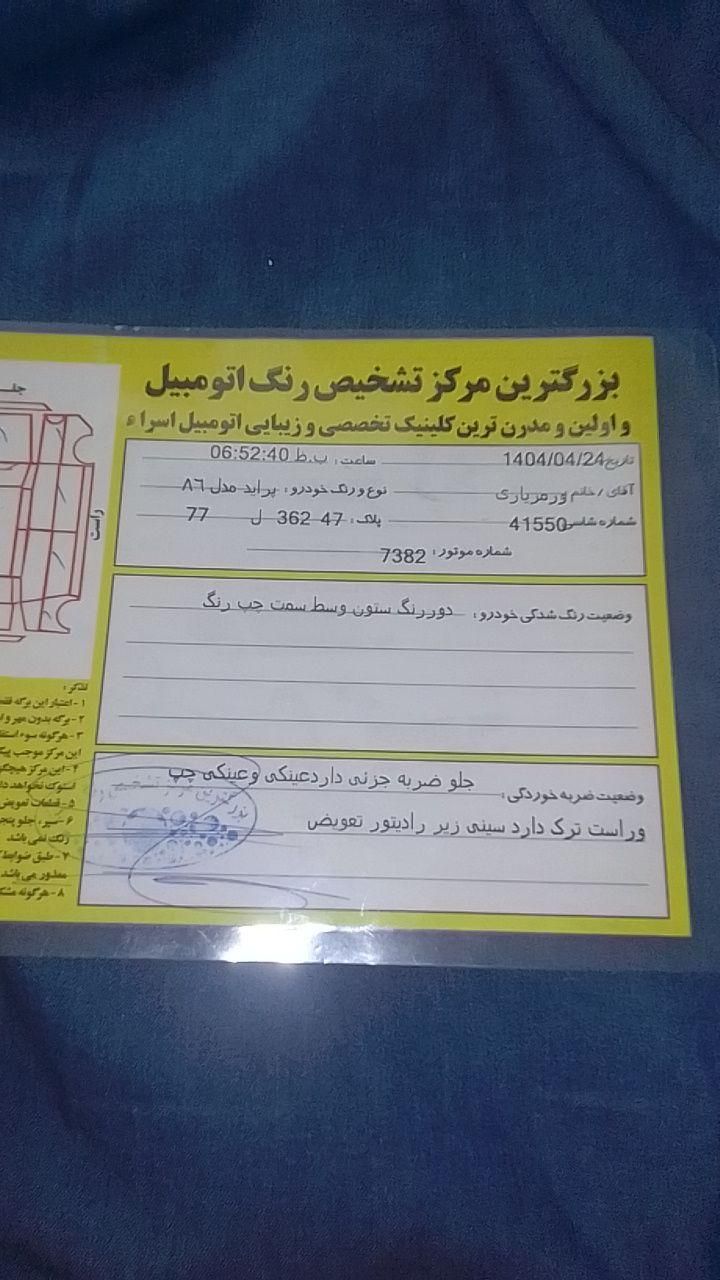 بزرگترین مرکز تشخیص رنگ اتومبیل
و اولین و مدرن ترین کلینیک تخصصی و زیبایی اتومبیل اسراء
تاریخ 1404/04/24 ساعت: ب.ظ 06:52:40
آقای / خانم ورمزیاری نوع و رنگ خودرو: پراید مدل ۸۶
شماره شاسی 41550 پلاک: 47 362 ل 77
شماره موتور: 7382
وضعیت رنگ شدگی خودرو: دوررنگ ستون وسط سمت چپ رنگ
وضعیت ضربه خوردگی: جلو ضربه جزئی دارد عینکی و عینکی چپ
وراست ترک دارد سینی زیر رادیتور تعویض
راست
تذکر:
۱- اعتبار این برگه
۲- برگه بدون مهر و
۳- هرگونه سوء
این مرکز موجب
۴- این مرکز
نخواهد
۵- قطعات تعویض
۶- سپر، جلو
رنگ نمی باشد
۷- طبق ضوابط
معذور می باشد
۸- هرگونه